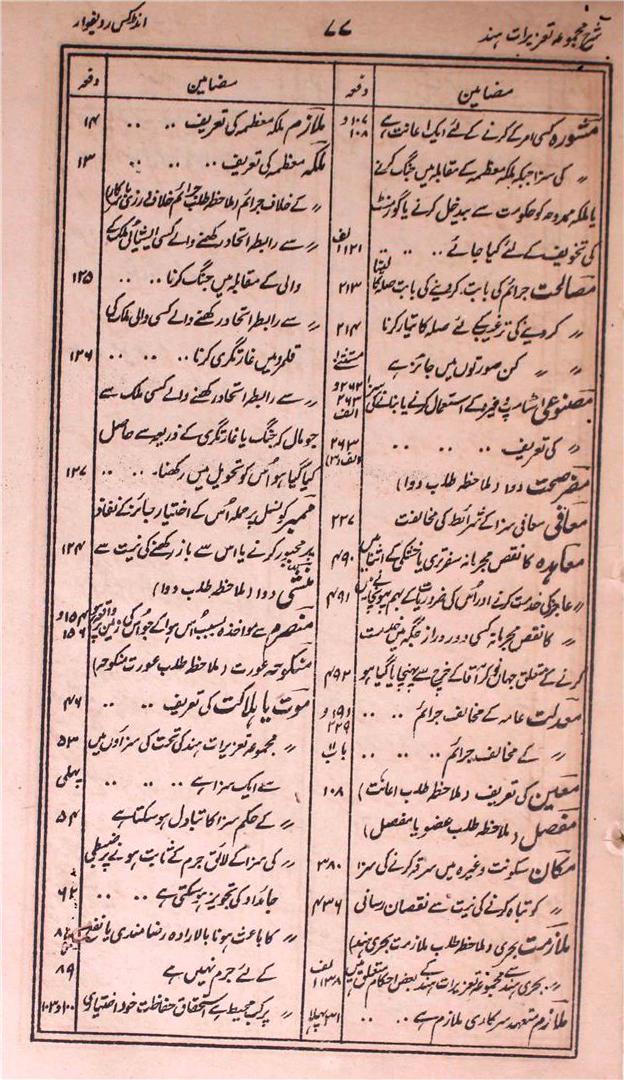 شرح مجموعہ تعزیرات ہند
۷۷
انڈکس ردیفوار
مضامین
دفعہ
مشورہ کسی امر کے کرنے کے لئے ایک اعانت ہے ۱۰۷ و ۱۰۸
〃 کی سزا جبکہ ملکہ معظمہ کے مقابلہ میں جنگ کرنے
یا ملکہ ممدوحہ کو حکومت سے بیدخل کرنے یا گورنمنٹ
کی تخویف کے لئے کیا جائے .. .. ۱۲۱ الف
مصالحت جرائم کی بابت۔ کروینے کی بابت صلہ کا لینا ۲۱۳
〃 کروینے کی ترغیب کے لئے صلہ کا تیار کرنا ۲۱۴
〃 〃 کن صورتوں میں جائز ہے مستثنےٰ
مصنوعی اشٹامپ وغیرہ کے استعمال کرنے یا بنانے کی سزا ۲۶۲ و ۲۶۳ الف
〃 کی تعریف .. .. .. ۲۶۳ الف (۳)
مضر صحت دوا (ملاحظہ طلب دوا)
معافی معافی سزا کے شرائط کی مخالفت ۲۲۷
معاہدہ کا نقص مجرمانہ سفر تری یا خشکی کے اثنا میں ۴۹۰
〃 عاجز کی خدمت کرنے اور اُس کی ضروریات کے بہم پہونچانے میں ۴۹۱
〃 کا نقص مجرمانہ کسی دور دراز جگہ میں خدمت
کرنے کے متعلق جہاں نوکر آقا کے خرچ سے پہنچایا گیا ہو ۴۹۲
معدلت عامہ کے مخالف جرائم .. .. و ۱۹ و ۲۲۹
〃 کے مخالف جرائم .. .. .. باب ۱۱
معین کی تعریف (ملاحظہ طلب اعانت) ۱۰۸
مفصل (ملاحظہ طلب عضو یا مفصل)
مکان سکونت وغیرہ میں سرقہ کرنے کی سزا ۳۸۰
〃 کو تباہ کرنے کی نیت سے نقصان رسانی ۴۳۶
ملازمت بحری (ملاحظہ طلب ملازمت بحری ہند)
〃 بحری ہند سے مجموعہ تعزیرات ہند کے بعض احکام متعلق ہیں ۱۳۸ الف
ملازم متعہد سرکاری ملازم ہے .. .. ۲۱ پہلا
مضامین
دفعہ
ملازم ملکہ معظمہ کی تعریف .. .. ۱۴
ملکہ معظمہ کی تعریف .. .. .. ۱۳
〃 کے خلاف جرائم (ملاحظہ طلب جرائم خلاف ورزی با سرکار)
〃 سے رابطہ اتحاد رکھنے والے کسی ایشیائی ملک کے
والی کے مقابلہ میں جنگ کرنا .. .. ۱۲۵
〃 سے رابطہ اتحاد رکھنے والے کسی والی ملک کی
قلمرو میں غارتگری کرنا .. .. .. ۱۲۶
〃 سے رابطہ اتحاد رکھنے والے کسی ملک سے
جو مال کہ جنگ یا غارتگری کے ذریعہ سے حاصل
کیا گیا ہو اُس کو تحویل میں رکھنا .. .. ۱۲۷
ممبر کونسل پر حملہ اُس کے اختیار جائز کے نفاذ
پر مجبور کرنے یا اس سے باز رکھنے کی نیت سے ۱۲۴
منشی دوا (ملاحظہ طلب دوا)
منصرم سے مواخذہ بسبب اُس بلوا کے جو اُس کی زمین پر واقع ہو ۱۵۴ و ۱۵۶
منکوحہ عورت (ملاحظہ طلب عورت منکوحہ)
موت یا ہلاکت کی تعریف .. .. ۴۶
〃 مجموعہ تعزیرات ہند کی تحت کی سزاؤں میں ۵۳
سے ایک سزا ہے .. .. .. پہلی
〃 کے حکم سزا کا تبادل ہو سکتا ہے ۵۴
〃 کی سزا کے لائق جرم کے ثابت ہونے پر ضبطی
جائداد کی تجویز ہو سکتی ہے .. ۶۲
〃 کا باعث ہونا بالارادہ رضامندی یا نفع
کے لئے جرم نہیں ہے ۸۹
〃 پر کب محیط ہے استحقاق حفاظت خود اختیاری ۱۰۰ و ۱۰۳